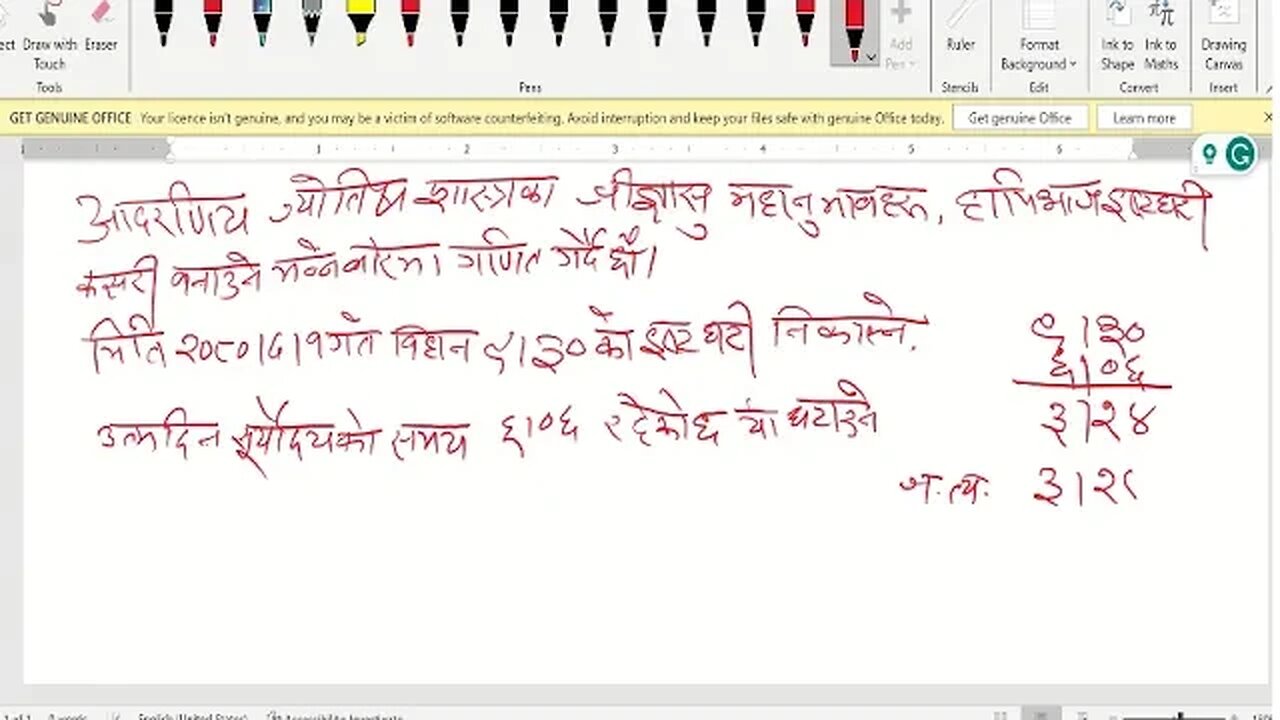 ect Draw with Touch Eraser Add Pen Ruler Format Background Ink to Shape Ink to Maths Drawing Canvas
Tools Pens Stencils Edit Convert Insert
GET GENUINE OFFICE Your licence isn't genuine, and you may be a victim of software counterfeiting. Avoid interruption and keep your files safe with genuine Office today. Get genuine Office Learn more
1 2 3 4 5 6
आदरणिय ज्योतिष शास्त्रका जीज्ञासु महानुभावहरू,
कसरी बनाउने भन्ने बारेमा गणित गर्दै छौं।
मिति २०८०।८।१ गते विहान ९।३० को इष्टघटी निकाल्ने.
९।३०
६।०६
३।२४
उत्मदिन सूर्योदयको समय ६।०६ रहेकोछ यो घटाउने
३।२
English (United States)